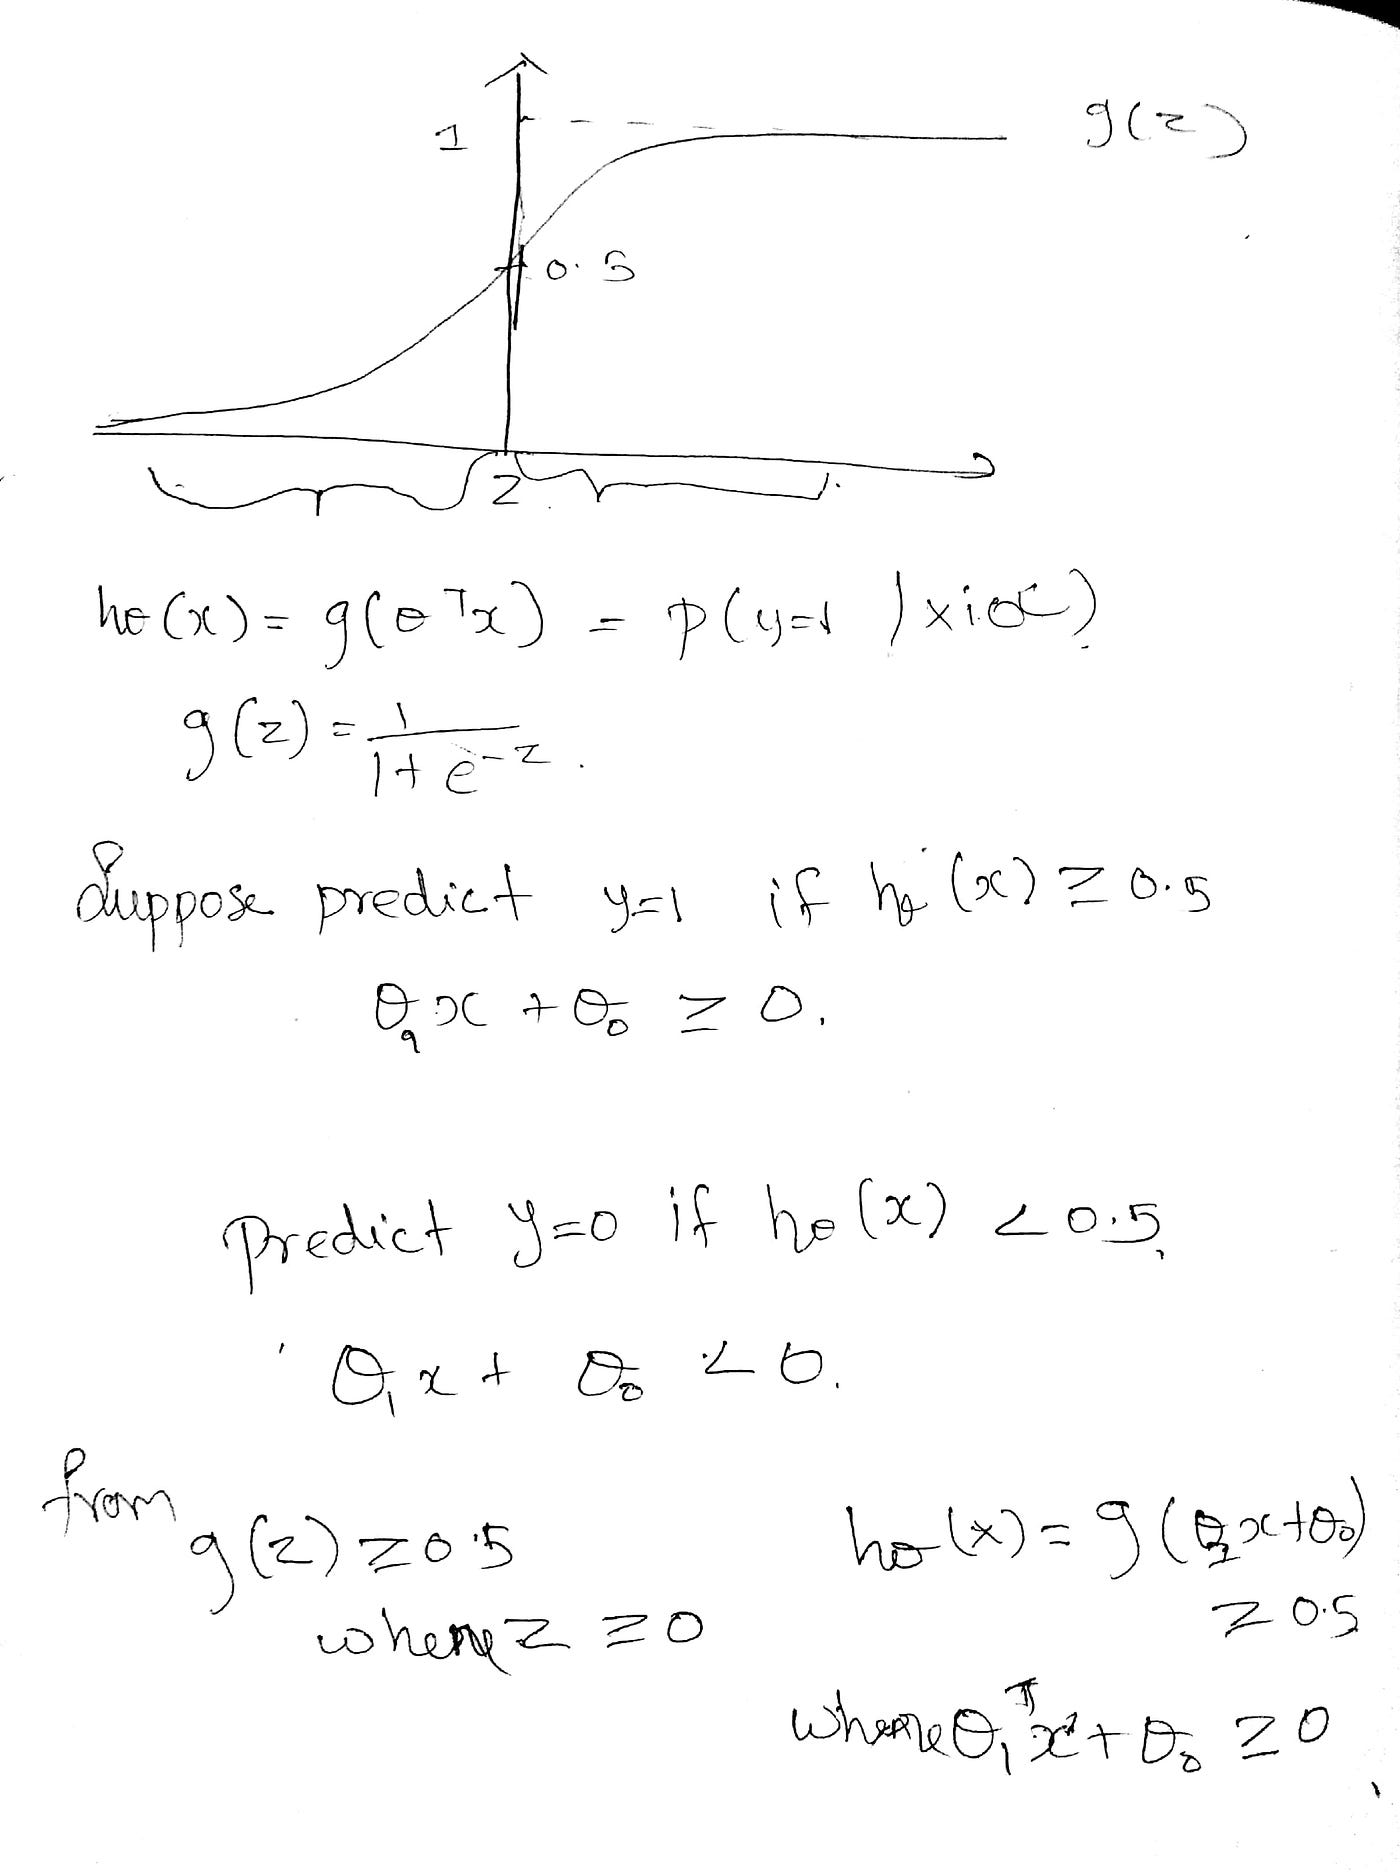 1
g(z)
0.5
z
hθ(x) = g(θᵀx) = p(y=1 | x;θ)
g(z) = 1/(1+e⁻ᶻ).
Suppose predict y=1 if hθ(x) ≥ 0.5
θ₁x + θ₀ ≥ 0.
Predict y=0 if hθ(x) < 0.5,
θ₁x + θ₀ < 0.
from
g(z) ≥ 0.5
where z ≥ 0
hθ(x) = g(θ₁x+θ₀)
≥ 0.5
where θ₁ᵀx + θ₀ ≥ 0